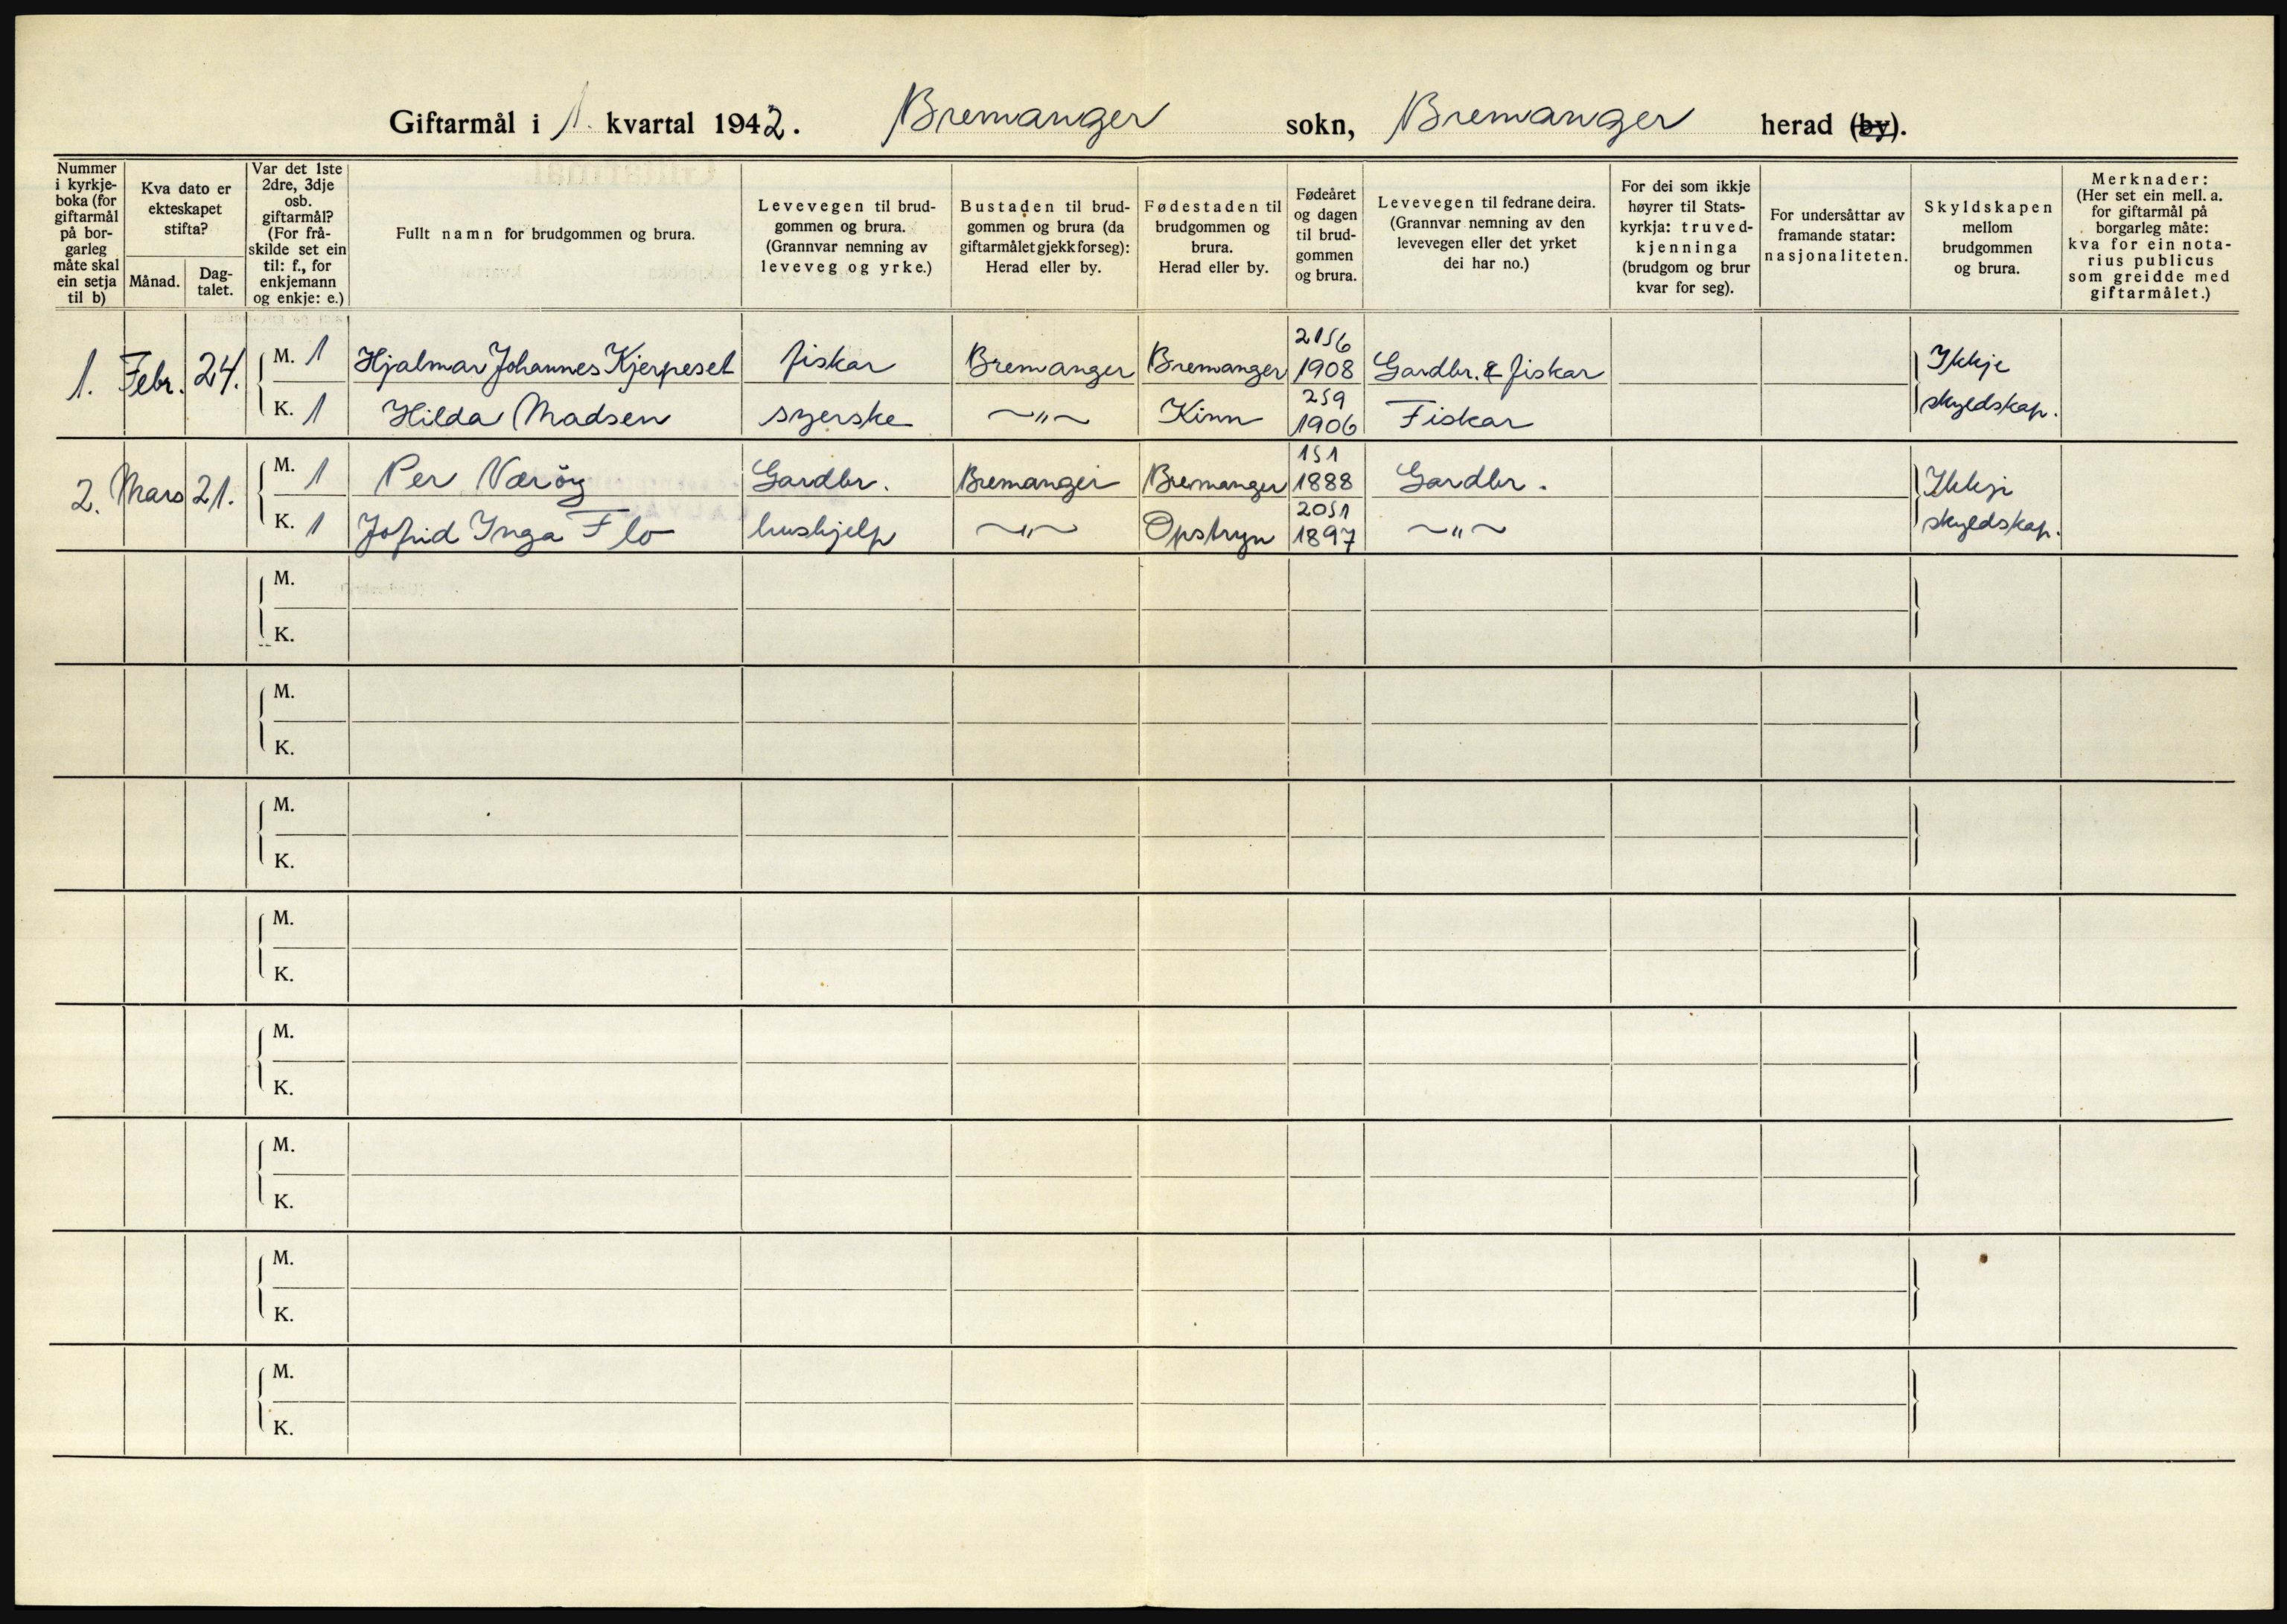 Giftarmål i 1. kvartal 1942. Bremanger sokn, Bremanger herad (by).
Nummer
i kyrkje-
boka (for
giftarmål
på bor-
garleg
måte skal
ein setja
til b)
Kva dato er
ekteskapet
stifta?
Månad.
Dag-
talet.
Var det 1ste
2dre, 3dje
osb.
giftarmål?
(For frå-
skilde set ein
til: f., for
enkjemann
og enkje: e.)
Fullt namn for brudgommen og brura.
Levevegen til brud-
gommen og brura.
(Grannvar nemning av
leveveg og yrke.)
Bustaden til brud-
gommen og brura (da
giftarmålet gjekk for seg):
Herad eller by.
Fødestaden til
brudgommen og
brura.
Herad eller by.
Fødeåret
og dagen
til brud-
gommen
og brura.
Levevegen til fedrane deira.
(Grannvar nemning av den
levevegen eller det yrket
dei har no.)
For dei som ikkje
høyrer til Stats-
kyrkja: truved-
kjenninga
(brudgom og brur
kvar for seg).
For undersåttar av
framande statar:
nasjonaliteten.
Skyldskapen
mellom
brudgommen
og brura.
Merknader:
(Her set ein mell. a.
for giftarmål på
borgarleg måte:
kva for ein nota-
rius publicus
som greidde med
giftarmålet.)
1. Febr. 24. M. 1 Hjalmar Johannes Kjerpeset fiskar Bremanger Bremanger 21 5/6 1908 Gardbr. & fiskar Ikkje
K. 1 Hilda Madsen syerske —"— Kinn 25/9 1906 Fiskar skyldskap.
2. Mars 21. M. 1 Per Værøy Gardbr. Bremanger Bremanger 15/1 1888 Gardbr. Ikkje
K. 1 Jofrid Inga Flo hushjelp —"— Opstryn 20 5/1 1897 —"— skyldskap.
M.
K.
M.
K.
M.
K.
M.
K.
M.
K.
M.
K.
M.
K.
M.
K.